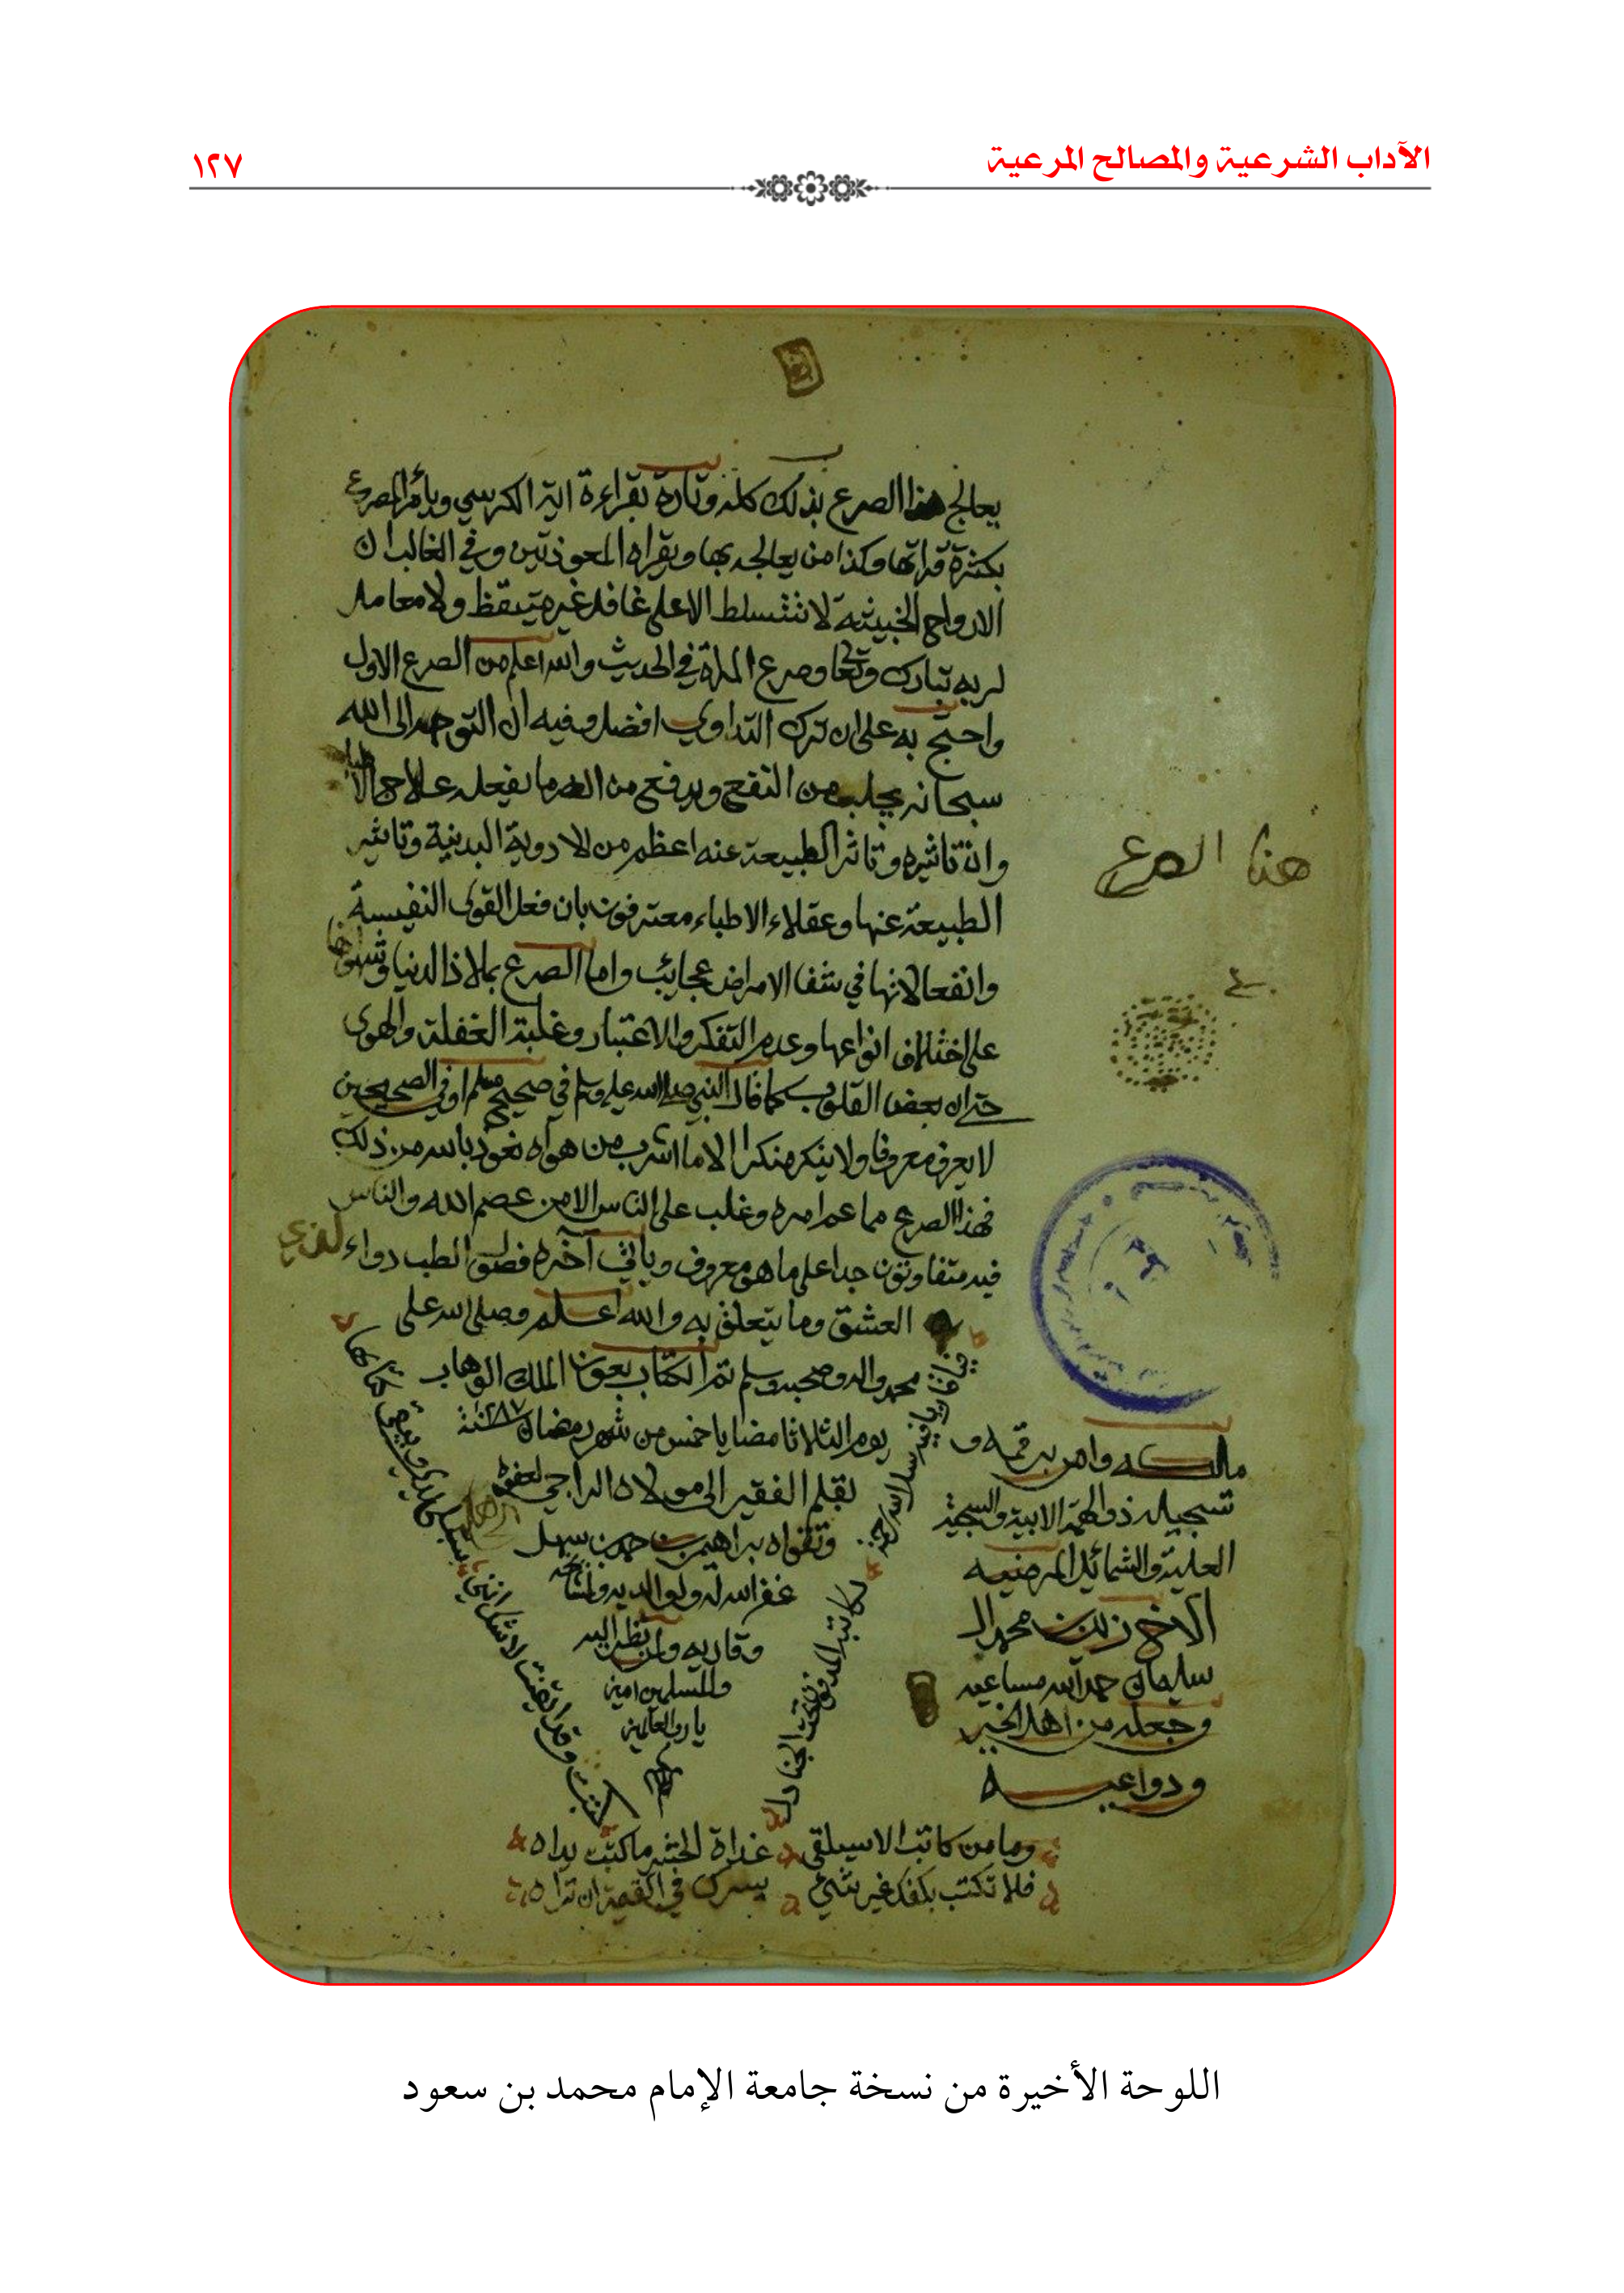 الآداب الشرعية والمصالح المرعية
١٢٧
يعالج هذا الصرع بذلك كله وتارة بقراءة اية الكرسي ويأمر المصروع
بكثرة قراتها وكذا من يعالجه بها ويقراه المعوذتين وفي الغالب ان
الارواح الخبيثة لا تتسلط الا على غافل غير متيقظ ولا معامل
لربه تبارك وتعا وصرع المراة في الحديث والله اعلم من الصرع الاول
واحتج به على ان ترك التداوي افضل وفيه ان التوجه الى الله
سبحانه يجلب من النفع ويدفع من الضر ما لا يفعله علاج الاطباء
وان تاثيره وتاثر الطبيعة عنه اعظم من الادوية البدنية وتاثير
الطبيعة عنها وعقلاء الاطباء معترفون بان فعل القوى النفيسة
وانفعالاتها في شفا الامراض عجايب واما الصرع بملاذ الدنيا وشهواتها
على اختلاف انواعها وعدم التفكر والاعتبار وغلبة الغفلة والهوى
حتى ان بعض القلوب كما قال النبي صلى الله عليه وسلم في صحيح مسلم او في الصحيحين
لا يعرف معروفا ولا ينكر منكرا الا ما اشرب من هواه نعوذ بالله من ذلك
فهذا الصرع مما عم امره وغلب على الناس الا من عصم الله والناس
فيه متفاوتون جدا على ما هو معروف وياتي آخره فصل في الطب دواء
العشق وما يتعلق به والله اعلم وصلى الله على
محمد واله وصحبه وسلم تم الكتاب بعون الملك الوهاب
يوم الثلاثا مضا يا خمس من شهر رمضان سنة ١٢٨٧
بقلم الفقير الى مولاه الراجي لعفوه
وتقواه براهيم بن حمد بن سهل
غفر الله له ولوالديه ولمشايخه
وقاريه ولمن نظر اليه
والمسلمين امين
يا رب العالمين
هذا الصرع
مالكه وامر برقمه و
تسجيله ذو الهمة الابية والسجية
العلية والشمائل المرضيه
الاخ زيد بن محمد ال
سليمان حمد الله مساعيه
وجعله من اهل الخير
ودواعيه
كتبت وقد ايقنت لا شك انني
وما من كاتب الا سيلقى غداة الحشر ما كتبت يداه
فلا تكتب بكفك غير شيء يسرك في القيمة ان تراه
اللوحة الأخيرة من نسخة جامعة الإمام محمد بن سعود